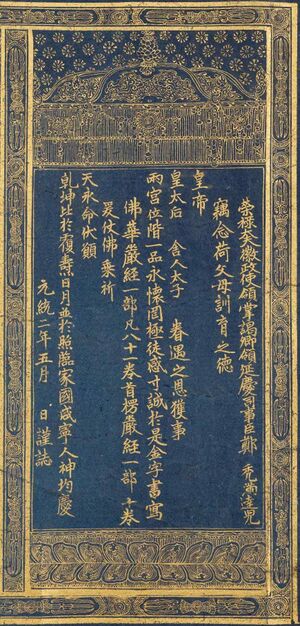 榮祿大夫徽政使領掌謁卿領延慶司事臣鄭 禿滿達兒
竊念荷父母訓育之德
皇帝
皇太后 舍人太子 眷遇之恩獲事
兩宮位階一品永懷罔極徒感寸誠於是金字書寫
佛華嚴經一部凡八十一卷首楞嚴經一部 十卷
爰仗佛乘祈
天永命伏願
乾坤比於覆燾日月並於照臨家國咸寧人神均慶
元統二年五月 日謹誌